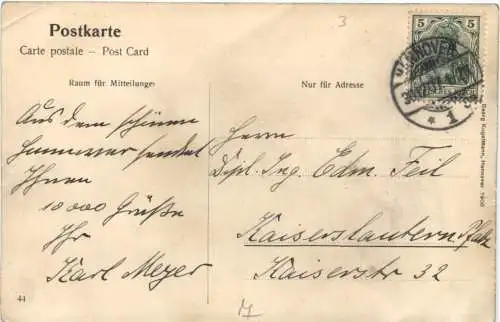 Postkarte
Carte postale – Post Card
Raum für Mitteilungen
Nur für Adresse
5 5
HANNOVER
* 1
Georg Kugelmann, Hannover 1906
3
Aus dem schönen
Hannover sendet
Ihnen
10000 Grüße
Ihr
Karl Meyer
Herrn
Dipl. Ing. Edm. Feil
Kaiserslautern Pfalz
Kaiserstr 32
44